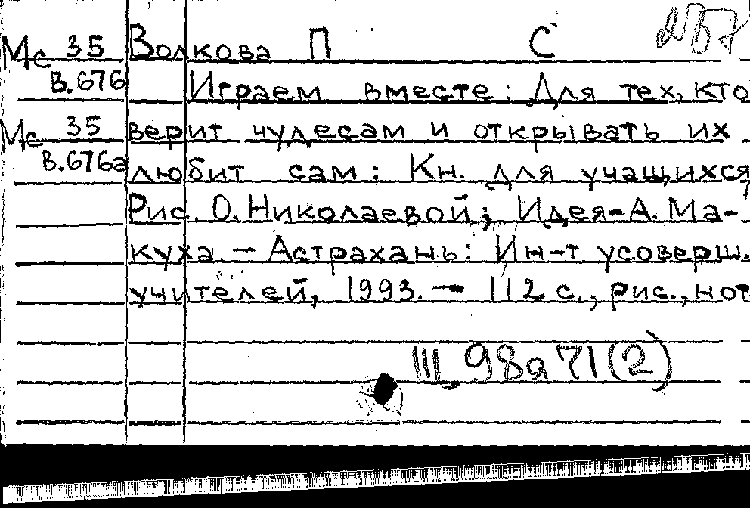 Мс 35 Волкова П С
В.676 Играем вместе: Для тех, кто
Мс 35 верит чудесам и открывать их
В.676а любит сам: Кн. для учащихся
Рис. О. Николаевой; Идея-А. Ма-
куха — Астрахань: Ин-т усоверш.
учителей, 1993. — 112 с., рис., нот
III 98а71(2)